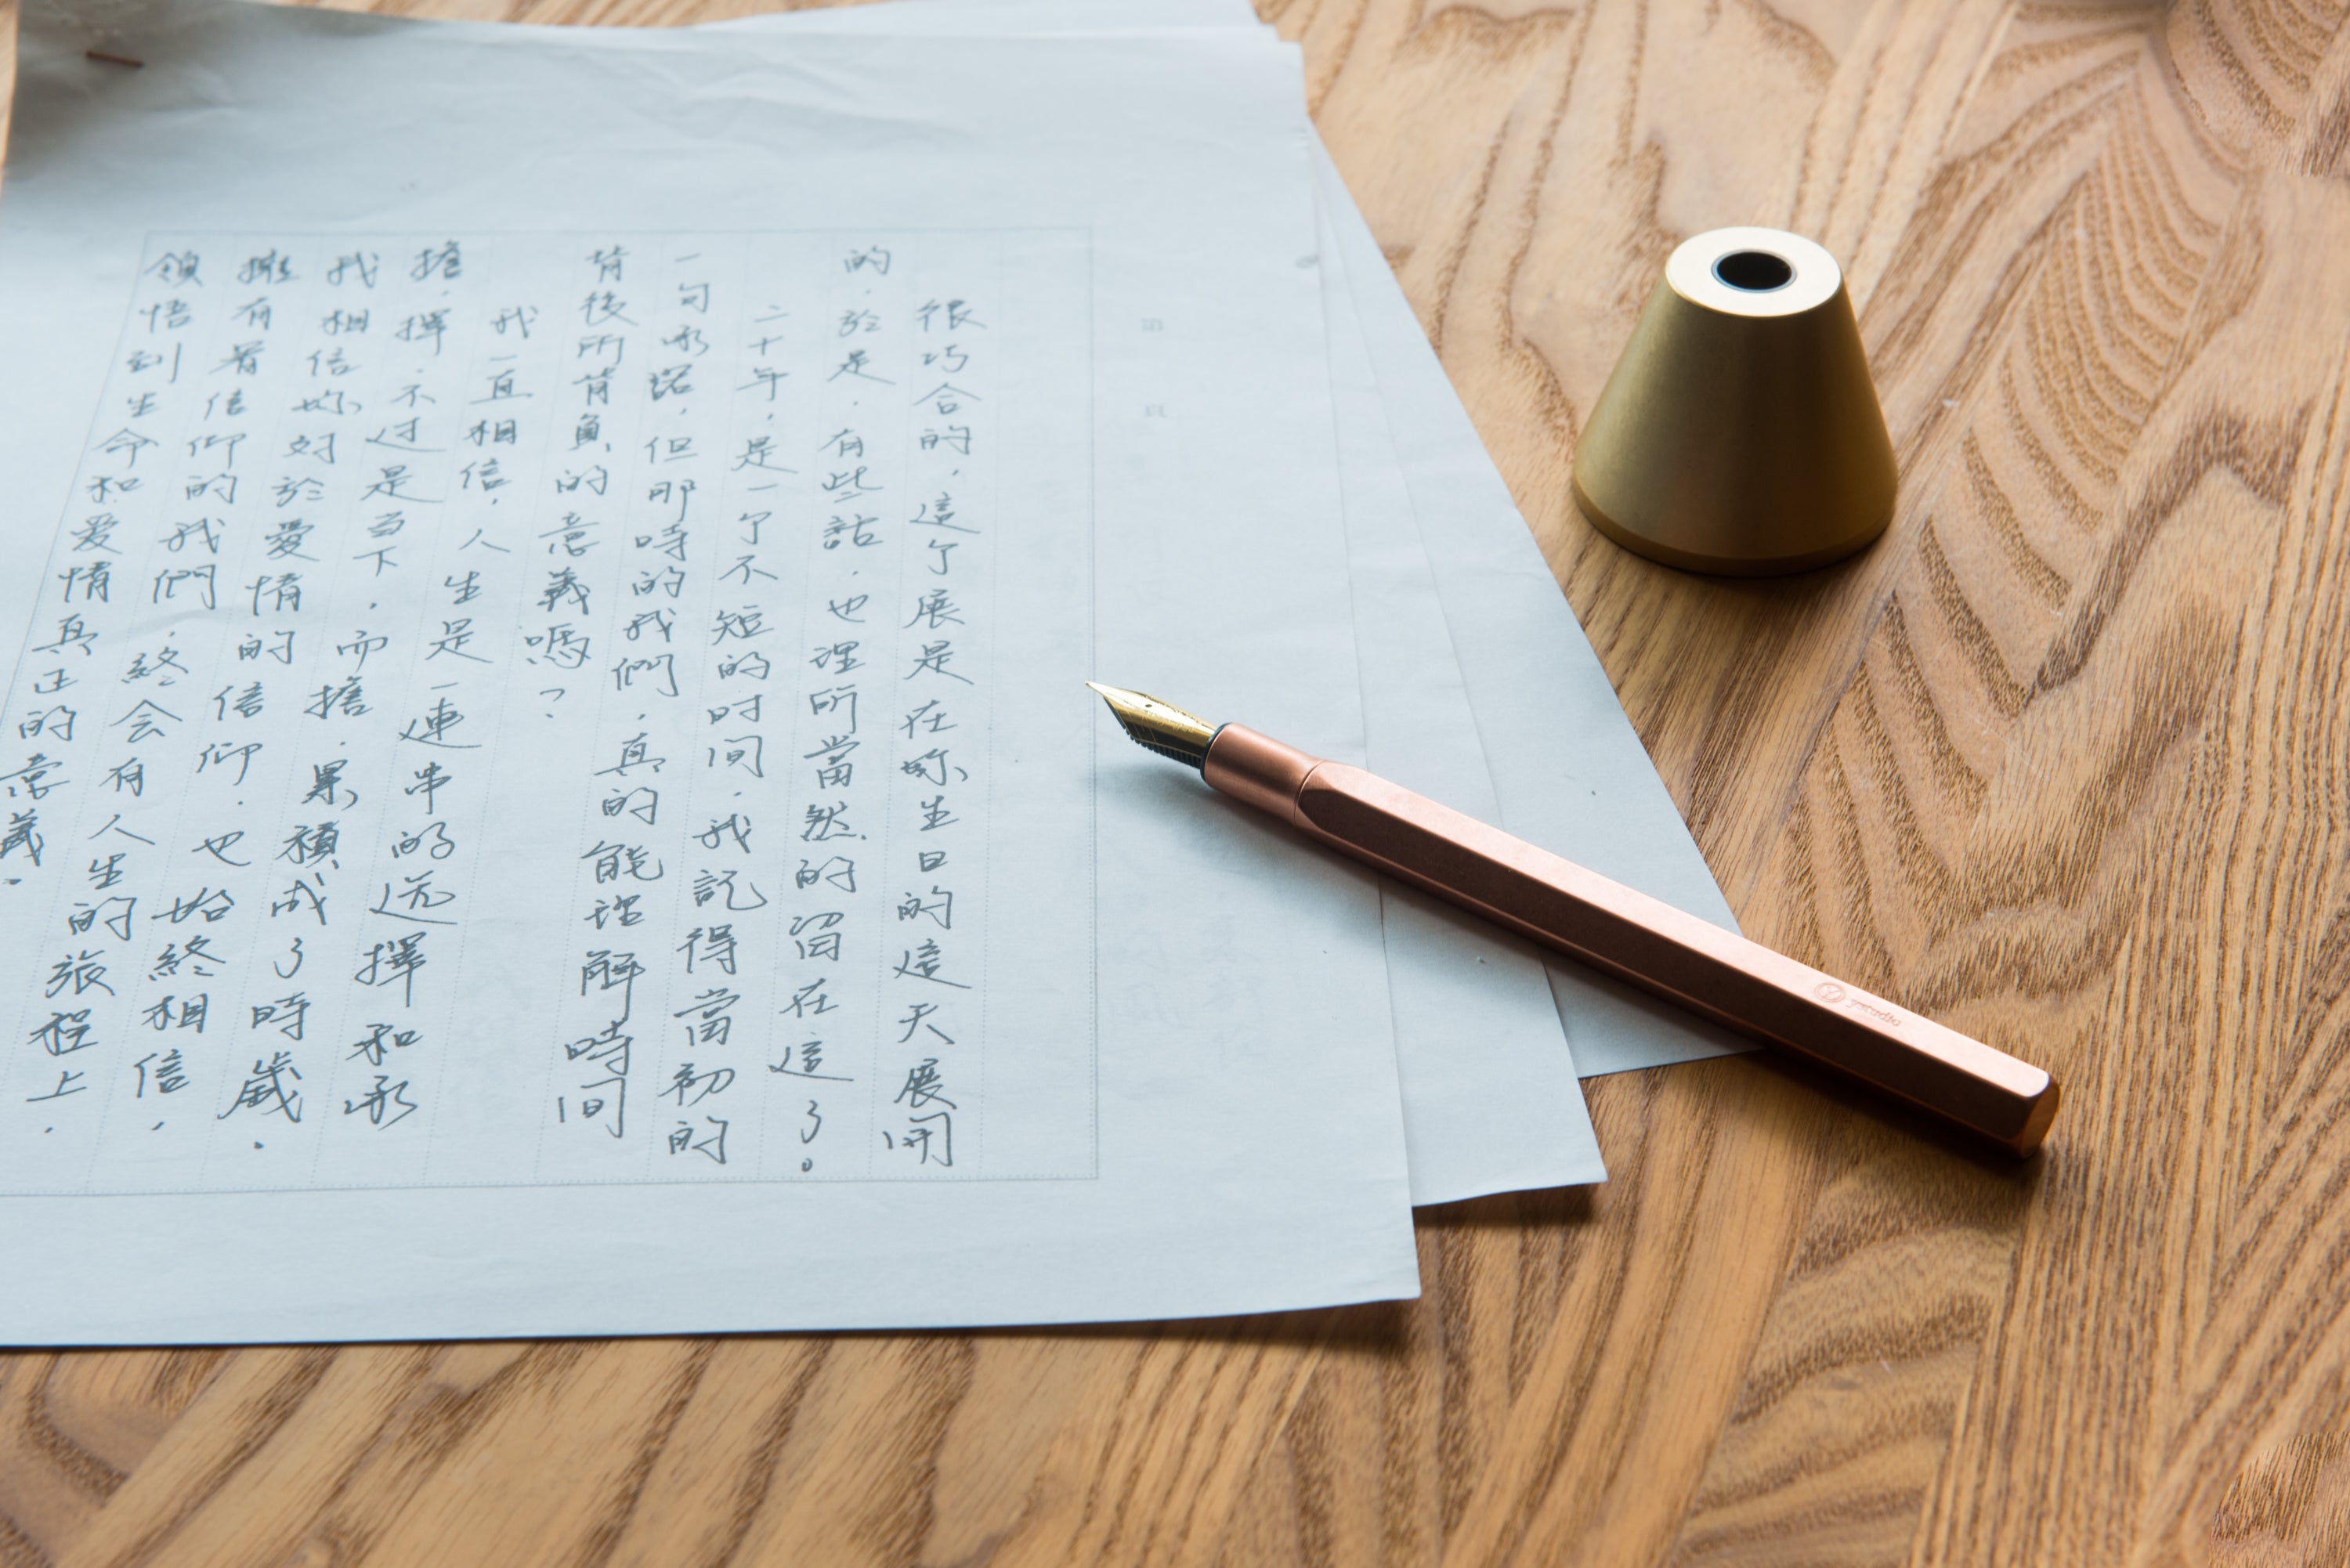 很巧合的，這个展是在妳生日的這天展開
的，於是，有些話，也理所當然的留在這了。
二十年，是一个不短的时间，我記得當初的
一句承諾，但那時的我們，真的能理解時间
背後所背負的意義嗎？
我一直相信，人生是一連串的选擇和承
擔，擇，不过是当下，而擔，累積成了時歲，
我相信妳對於愛情的信仰，也始終相信，
擁有着信仰的我們，終会有人生的旅程上，
領悟到生命和爱情真正的意義。
ystudio